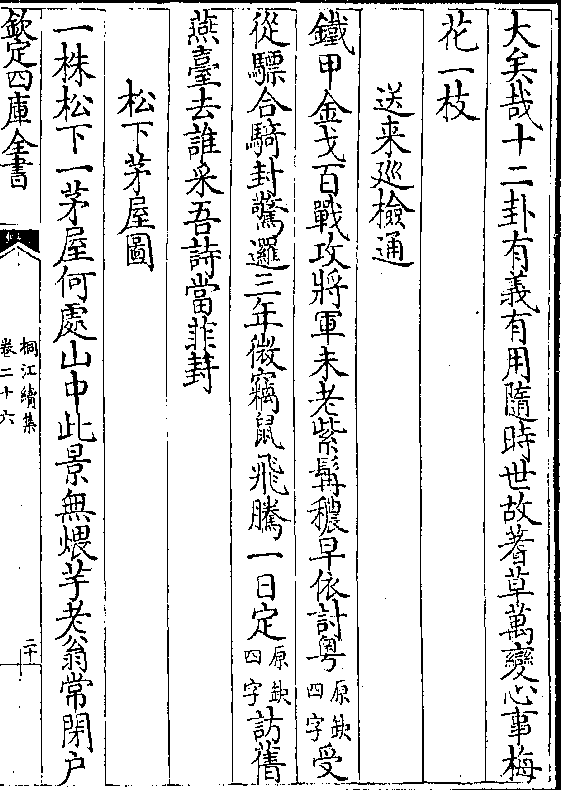 大矣哉十二卦有義有用隨時世故著草萬變心事梅
花一枝
送来廵檢通
鐵甲金戈百戰攻將軍未老紫髯穠早依討粤原欽四字受
從驃合騎封驚邏三年微竊鼠飛騰一日定原欽四字訪舊
燕臺去誰采吾詩當菲葑
松下茅屋圖
一株松下一茅屋何處山中此景無煨芋老翁常閉户
欽定四庫全書
桐江續集
卷二十六
二十